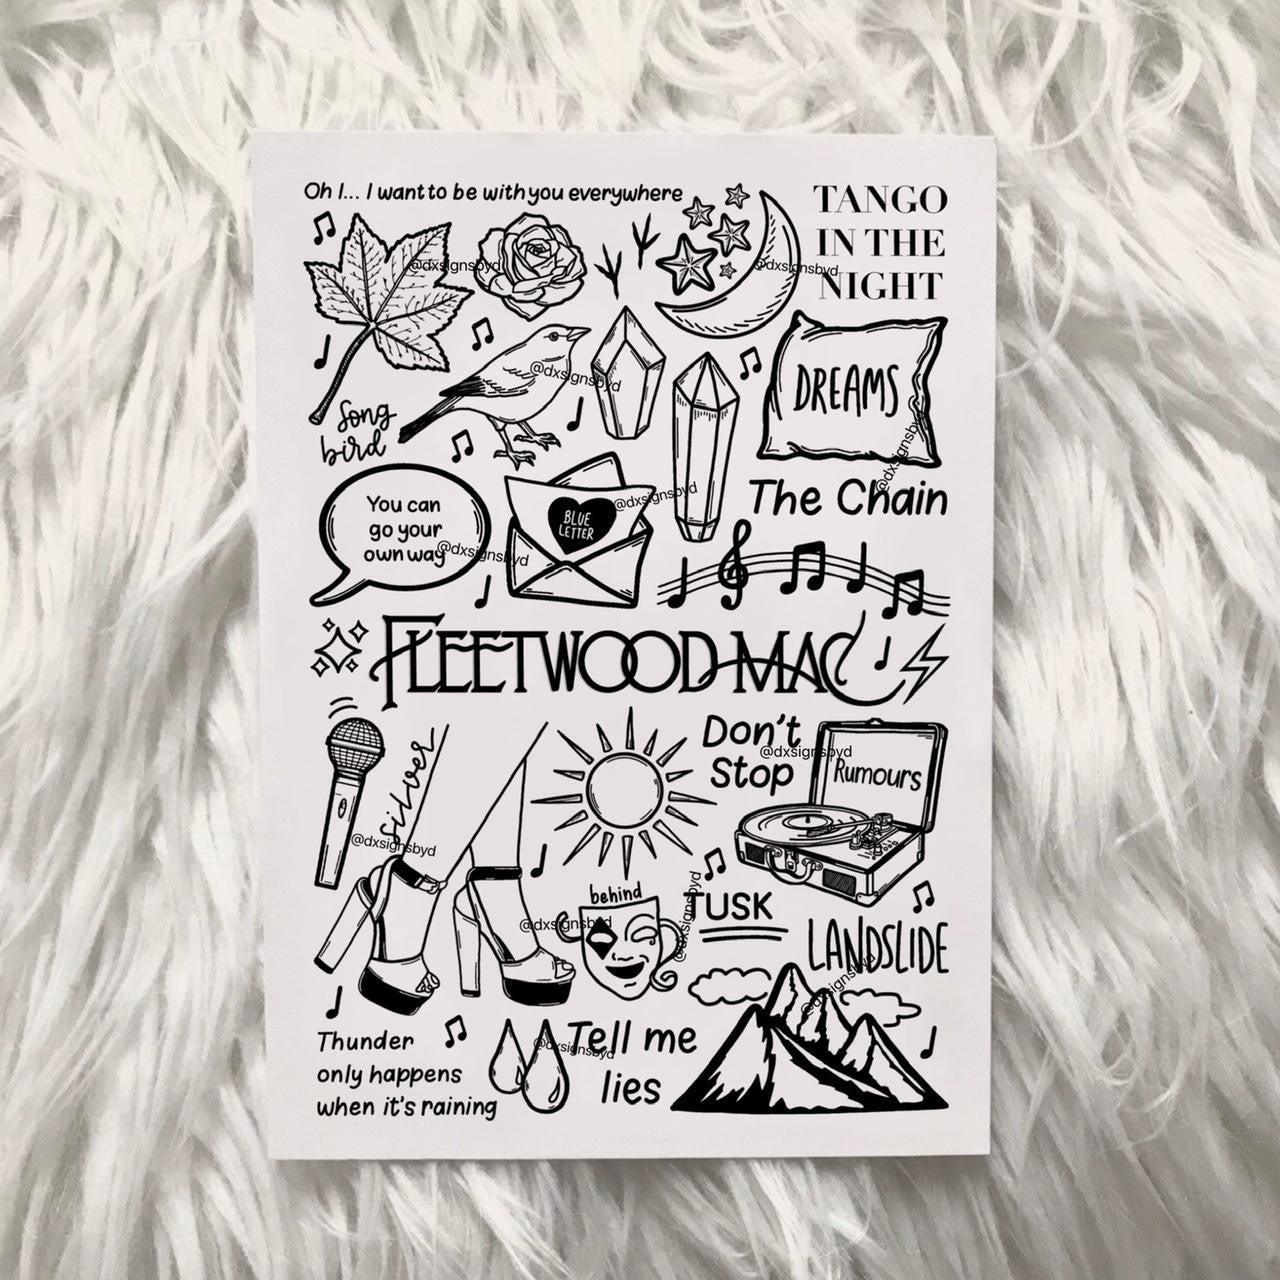 Oh I... I want to be with you everywhere
TANGO
IN THE
NIGHT
@dxsignsbyd
@dxsignsbyd
@dxsignsbyd
DREAMS
@dxsignsbyd
Song
bird
You can
go your
own way
@dxsignsbyd
BLUE
LETTER
@dxsignsbyd
The Chain
FLEETWOOD MAC
silver
@dxsignsbyd
Don't
Stop
@dxsignsbyd
Rumours
behind
@dxsignsbyd
@dxsignsbyd
TUSK
LANDSLIDE
@dxsignsbyd
Thunder
only happens
when it's raining
@dxsignsbyd
Tell me
lies